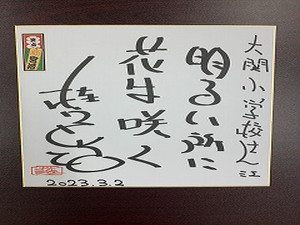 大関小学校さん江
明るい所に
花は咲く
2023.3.2